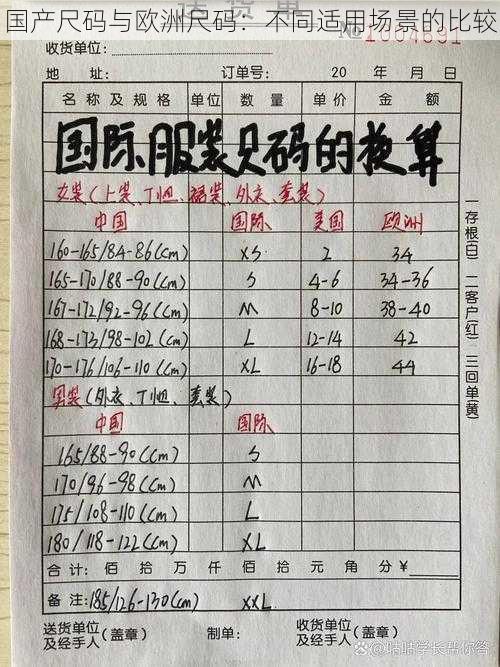 国产尺码与欧洲尺码：不同适用场景的比较
送货单
收货单位： №1004691
地址： 订单号： 20 年 月 日
名称及规格 单位 数量 单价 金额
国际服装尺码的换算
女装（上装、T恤、裙装、外衣、套装）
中国 国际 美国 欧洲
160-165/84-86(cm) XS 2 34
165-170/88-90(cm) S 4-6 34-36
167-172/92-96(cm) M 8-10 38-40
168-173/98-102(cm) L 12-14 42
170-176/106-110(cm) XL 16-18 44
男装（外衣、T恤、套装）
中国 国际
165/88-90(cm) S
170/96-98(cm) M
175/108-110(cm) L
180/118-122(cm) XL
合计： 佰 拾 万 仟 佰 拾 元 角 分 ¥
备注：185/126-130(cm) XXL
送货单位及经手人（盖章） 收货单位及经手人（盖章）
一存根(白) 二客户(红) 三回单(黄)
@咕咕学长帮你答